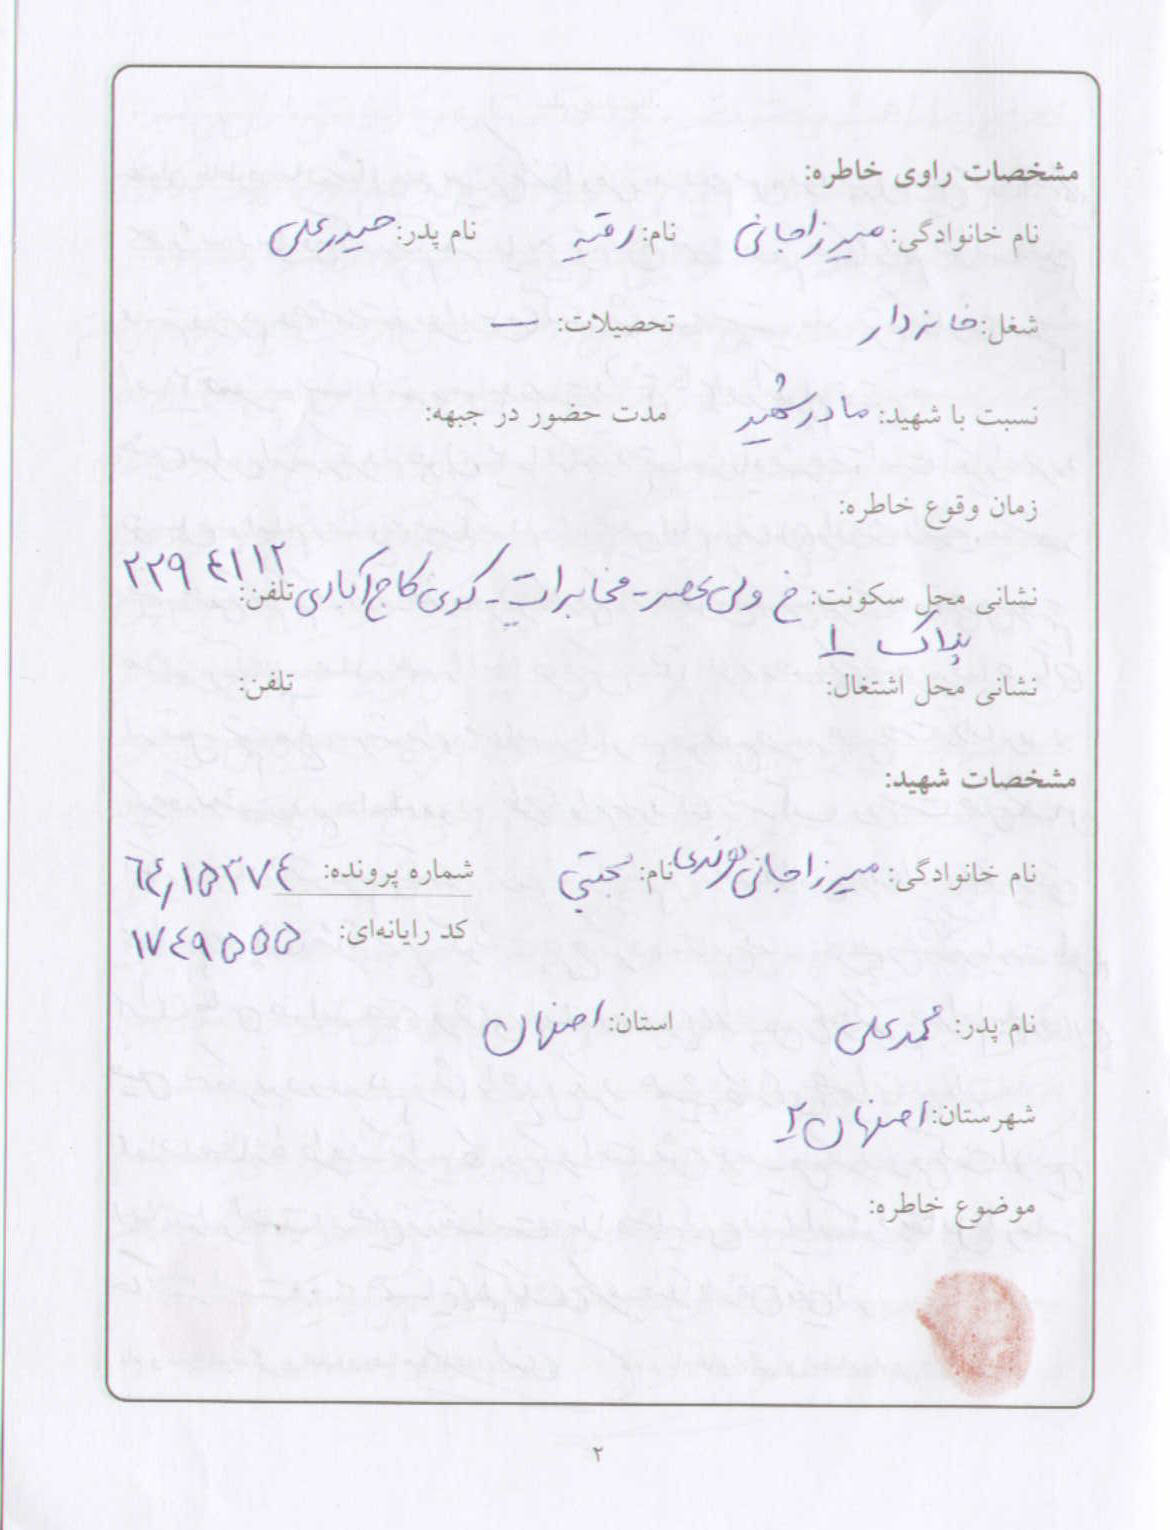 مشخصات راوی خاطره:
نام خانوادگی: میرزاجانی نام: رقیه نام پدر: حیدرعلی
شغل: خانه‌دار تحصیلات: —
نسبت با شهید: مادر شهید مدت حضور در جبهه:
زمان وقوع خاطره:
نشانی محل سکونت: خ ولی عصر - مخابرات - کوی کاج آبادی تلفن: ۲۲۹۴۱۱۲
پلاک ۱
نشانی محل اشتغال: تلفن:
مشخصات شهید:
نام خانوادگی: میرزاجانی نام: مجتبی شماره پرونده: ۶۴٫۱۵۳۷۴
کد رایانه‌ای: ۱۷۴۹۵۵۵
نام پدر: محمدعلی استان: اصفهان
شهرستان: اصفهان ۲
موضوع خاطره:
۲